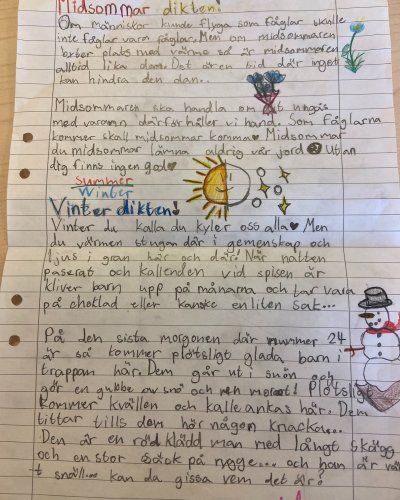 Midsommar dikten!
Om människor kunde flyga som fåglar skulle
inte fåglar vara fåglar. Men om midsommaren
byter plats med värme så är midsommaren
alltid lika dan. Det är en tid där inget
kan hindra den dan..
Midsommaren ska handla om att umgås
med varann därför håller vi hand. Som fåglarna
kommer skall midsommar komma♥ Midsommar
du midsommar lämna aldrig vår jord Utan
dig finns ingen god♥
Summer
Winter
Vinter dikten!
Vinter du kalla du kyler oss alla♥ Men
du värmen stugan där i gemenskap och
ljus i gran här och där! När natten
paserat och kallenden vid spisen är
kliver barn upp på månarna och tar vara
på choklad eller kanske en liten sak...
På den sista morgonen där nummer 24
är så kommer plötsligt glada barn i
trappan här. Dem går ut i snön och
gör en gubbe av snö och en morot! Plötsligt
kommer kvällen och kalleankas här. Dem
tittar tills dom hör någon knacka...
Den är en röd klädd man med långt skägg
och en stor säck på rygge... och han är väl
snäll... kan du gissa vem det är?